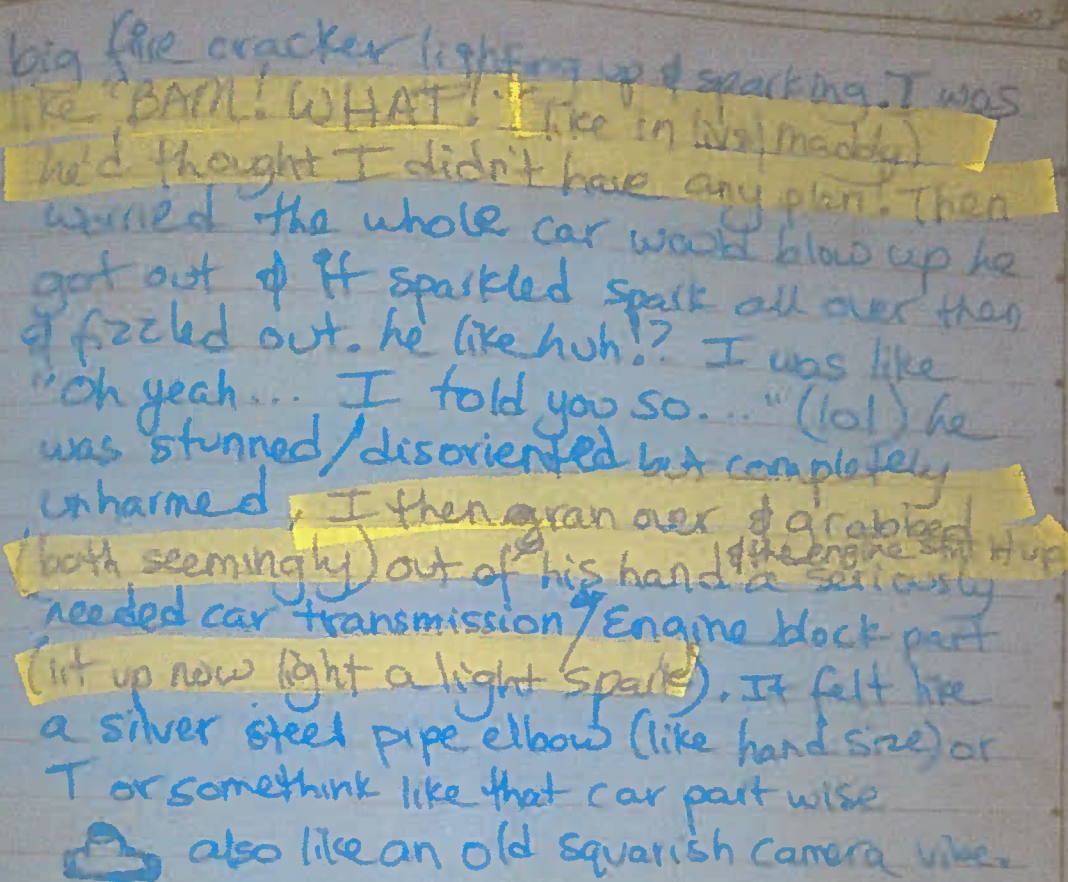 big fire cracker lighting up & sparking. I was
like "BAM! WHAT!" (like in maddy)
he'd thought I didn't have any plan! Then
worried the whole car would blow up he
got out & it sparkled spark all over then
& fizzled out. he like huh!? I was like
"Oh yeah... I told you so..." (lol) he
was stunned/disoriented but completely
unharmed, I then ran over & grabbed
(both seemingly) out of his hand & the engine lit up a seriously
needed car transmission/Engine block part
(lit up now light a light spark). It felt like
a silver steel pipe elbow (like hand size) or
T or somethink like that car part wise
also like an old squarish camera vibe.